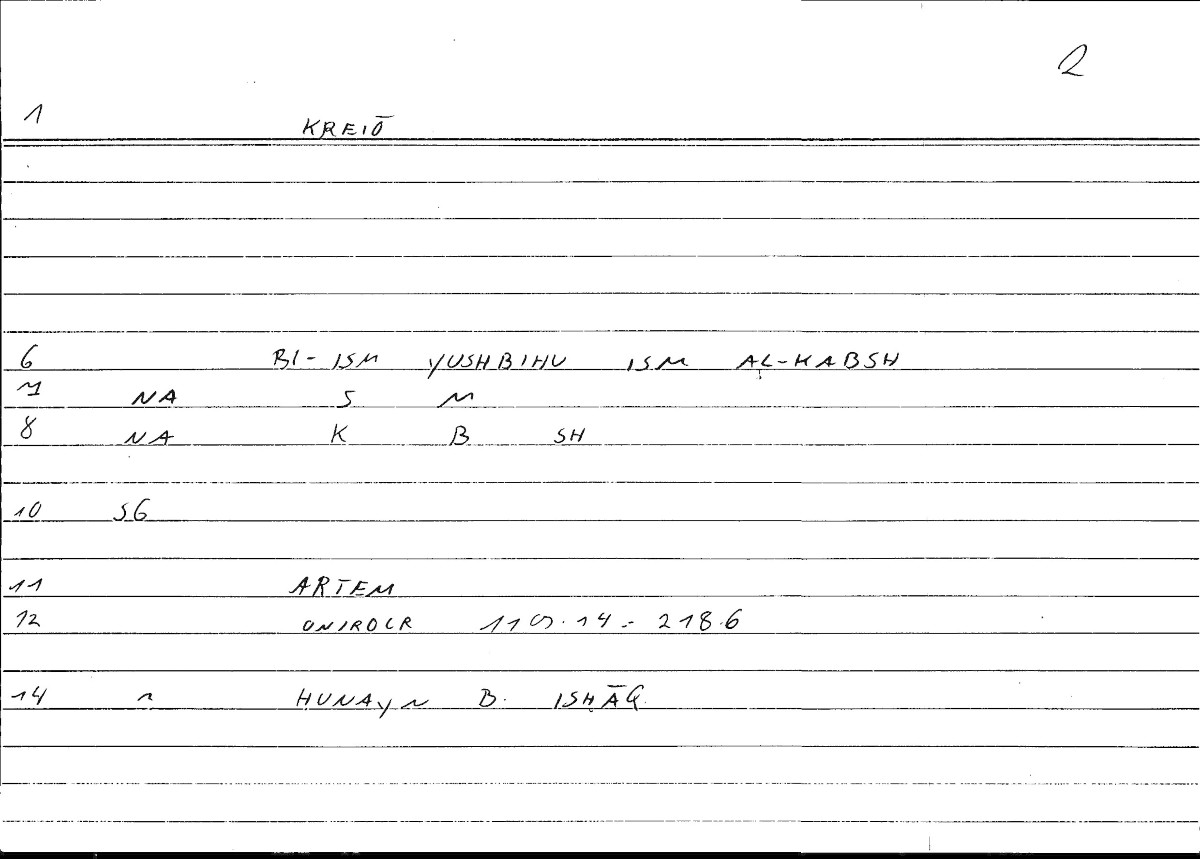 2
1 KREIŌ
6 BI- ISM YUSHBIHU ISM AL-KABSH
7 NA S M
8 NA K B SH
10 SG
11 ARTEM
12 ONIROCR 119.14 - 218.6
14 1 ḤUNAYN B. ISḤĀQ